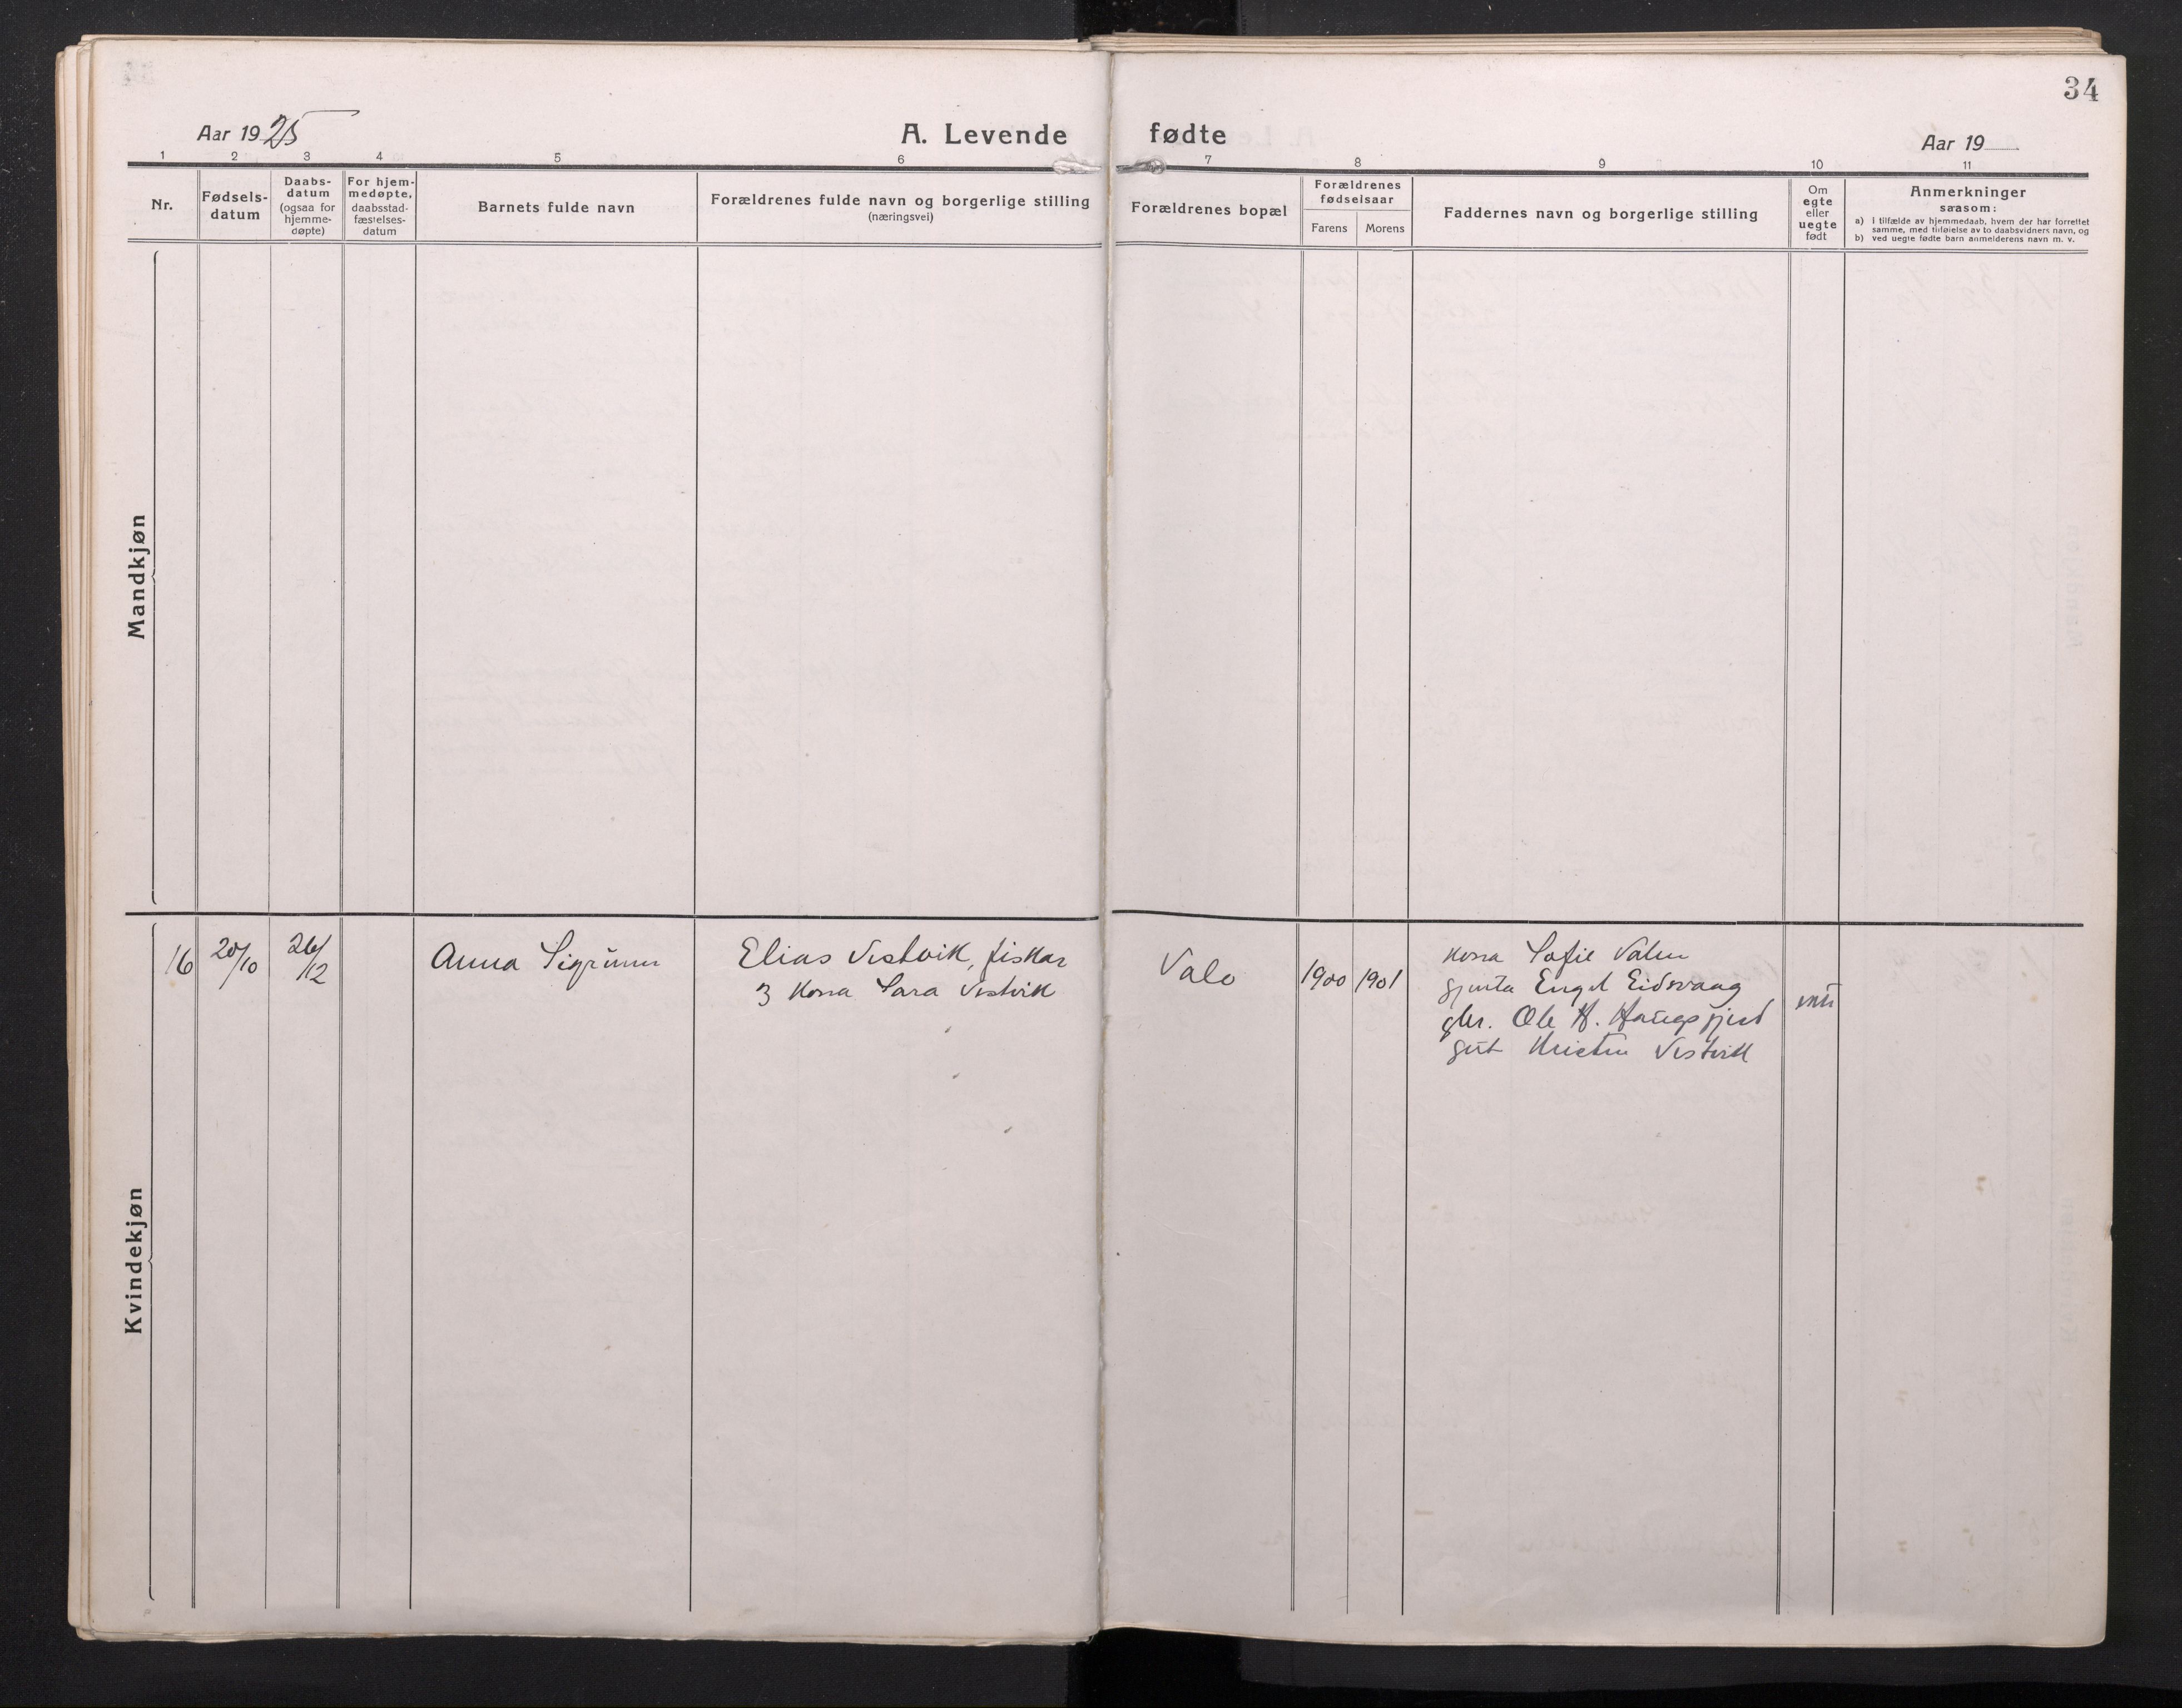 34
Aar 1925
A. Levende fødte
Aar 19
1 2 3 4 5 6 7 8 9 10 11
Nr.
Fødsels-
datum
Daabs-
datum
(ogsaa for
hjemme-
døpte)
For hjem-
medøpte,
daabsstad-
fæstelses-
datum
Barnets fulde navn
Forældrenes fulde navn og borgerlige stilling
(næringsvei)
Forældrenes bopæl
Forældrenes
fødselsaar
Farens Morens
Faddernes navn og borgerlige stilling
Om
egte
eller
uegte
født
Anmerkninger
saasom:
a) i tilfælde av hjemmedaab, hvem der har forrettet
samme, med tilføielse av to daabsvidners navn, og
b) ved uegte fødte barn anmelderens navn m. v.
Mandkjøn
Kvindekjøn
16
20/10
26/12
Anna Sigrunn
Elias Vestvik, fiskar
Kona Sara Vestvik
Valo
1900 1901
Kona Sofie Valen
gjenta Engel Eidsvaag
gbr. Ole H.
gut Kristen Vestvik